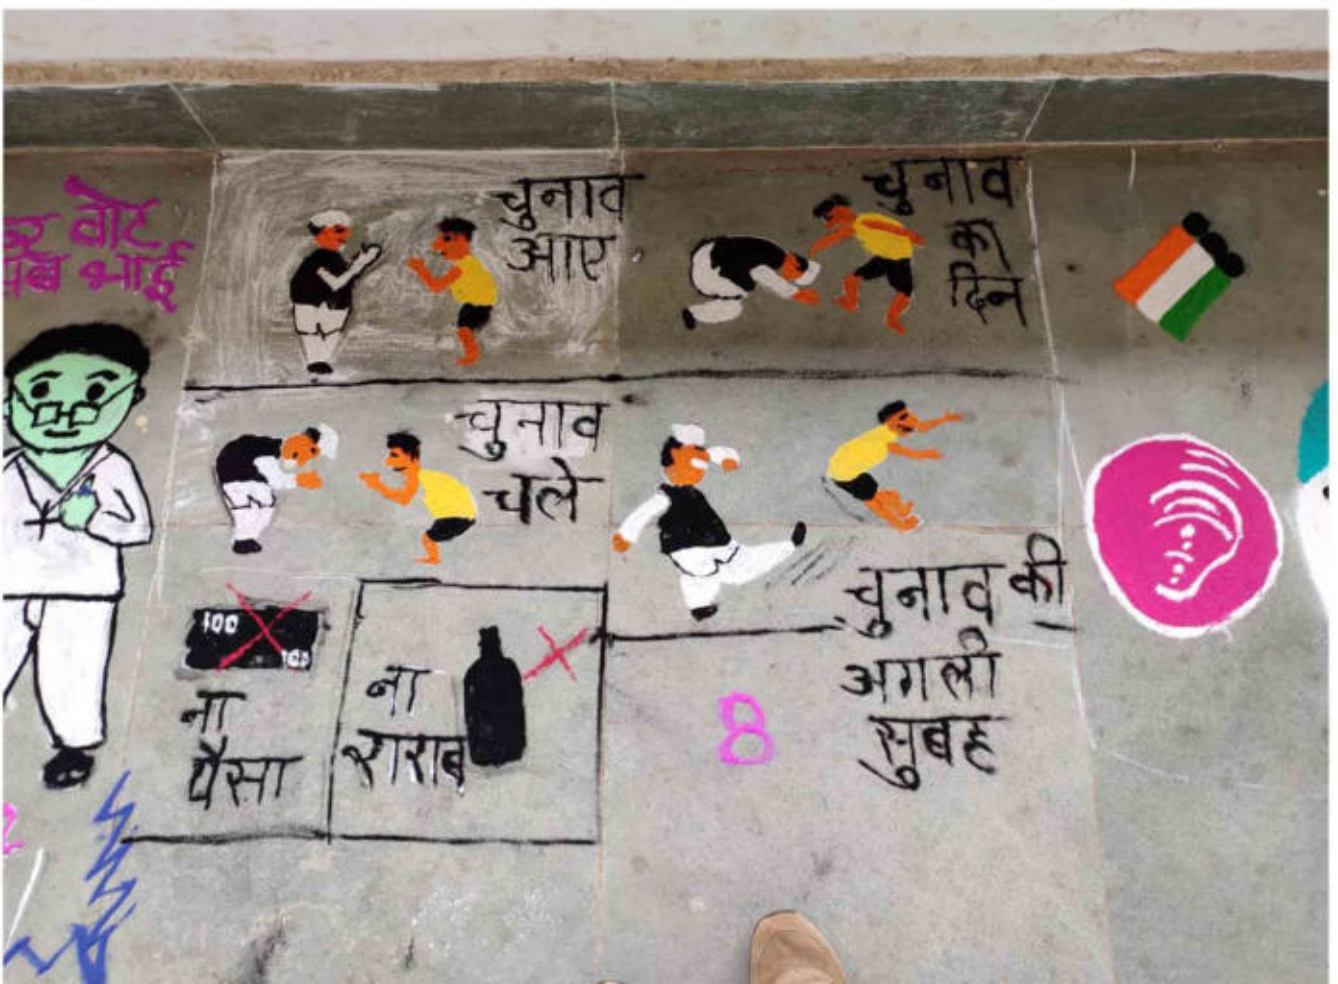 वोट
भाई
चुनाव
आए
चुनाव
का
दिन
चुनाव
चले
चुनाव की
अगली
सुबह
100
100
ना
पैसा
ना
शराब
8